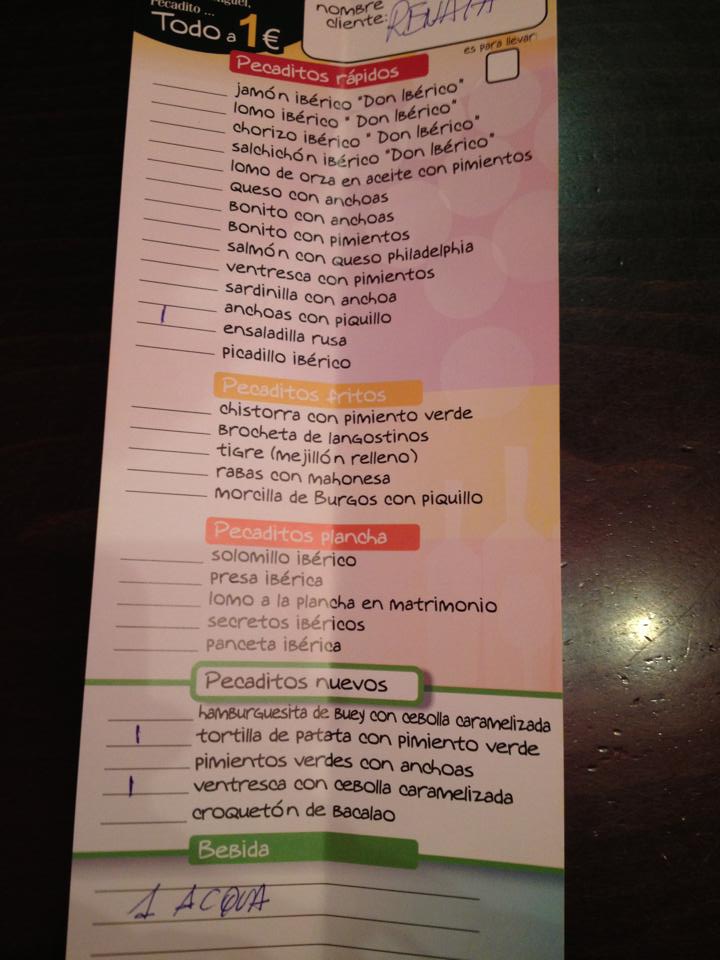 pecadito ...
Todo a 1€
nombre
cliente: RENATA
es para llevar:
Pecaditos rápidos
jamón ibérico "Don Ibérico"
lomo ibérico "Don Ibérico"
chorizo ibérico "Don Ibérico"
salchichón ibérico "Don Ibérico"
lomo de orza en aceite con pimientos
queso con anchoas
Bonito con anchoas
Bonito con pimientos
salmón con queso philadelphia
ventresca con pimientos
sardinilla con anchoa
anchoas con piquillo
1 ensaladilla rusa
picadillo ibérico
Pecaditos fritos
chistorra con pimiento verde
Brocheta de langostinos
tigre (mejillón relleno)
rabas con mahonesa
morcilla de Burgos con piquillo
Pecaditos plancha
solomillo ibérico
presa ibérica
lomo a la plancha en matrimonio
secretos ibéricos
panceta ibérica
Pecaditos nuevos
hamburguesita de buey con cebolla caramelizada
1 tortilla de patata con pimiento verde
pimientos verdes con anchoas
1 ventresca con cebolla caramelizada
croquetón de bacalao
Bebida
1 ACQUA